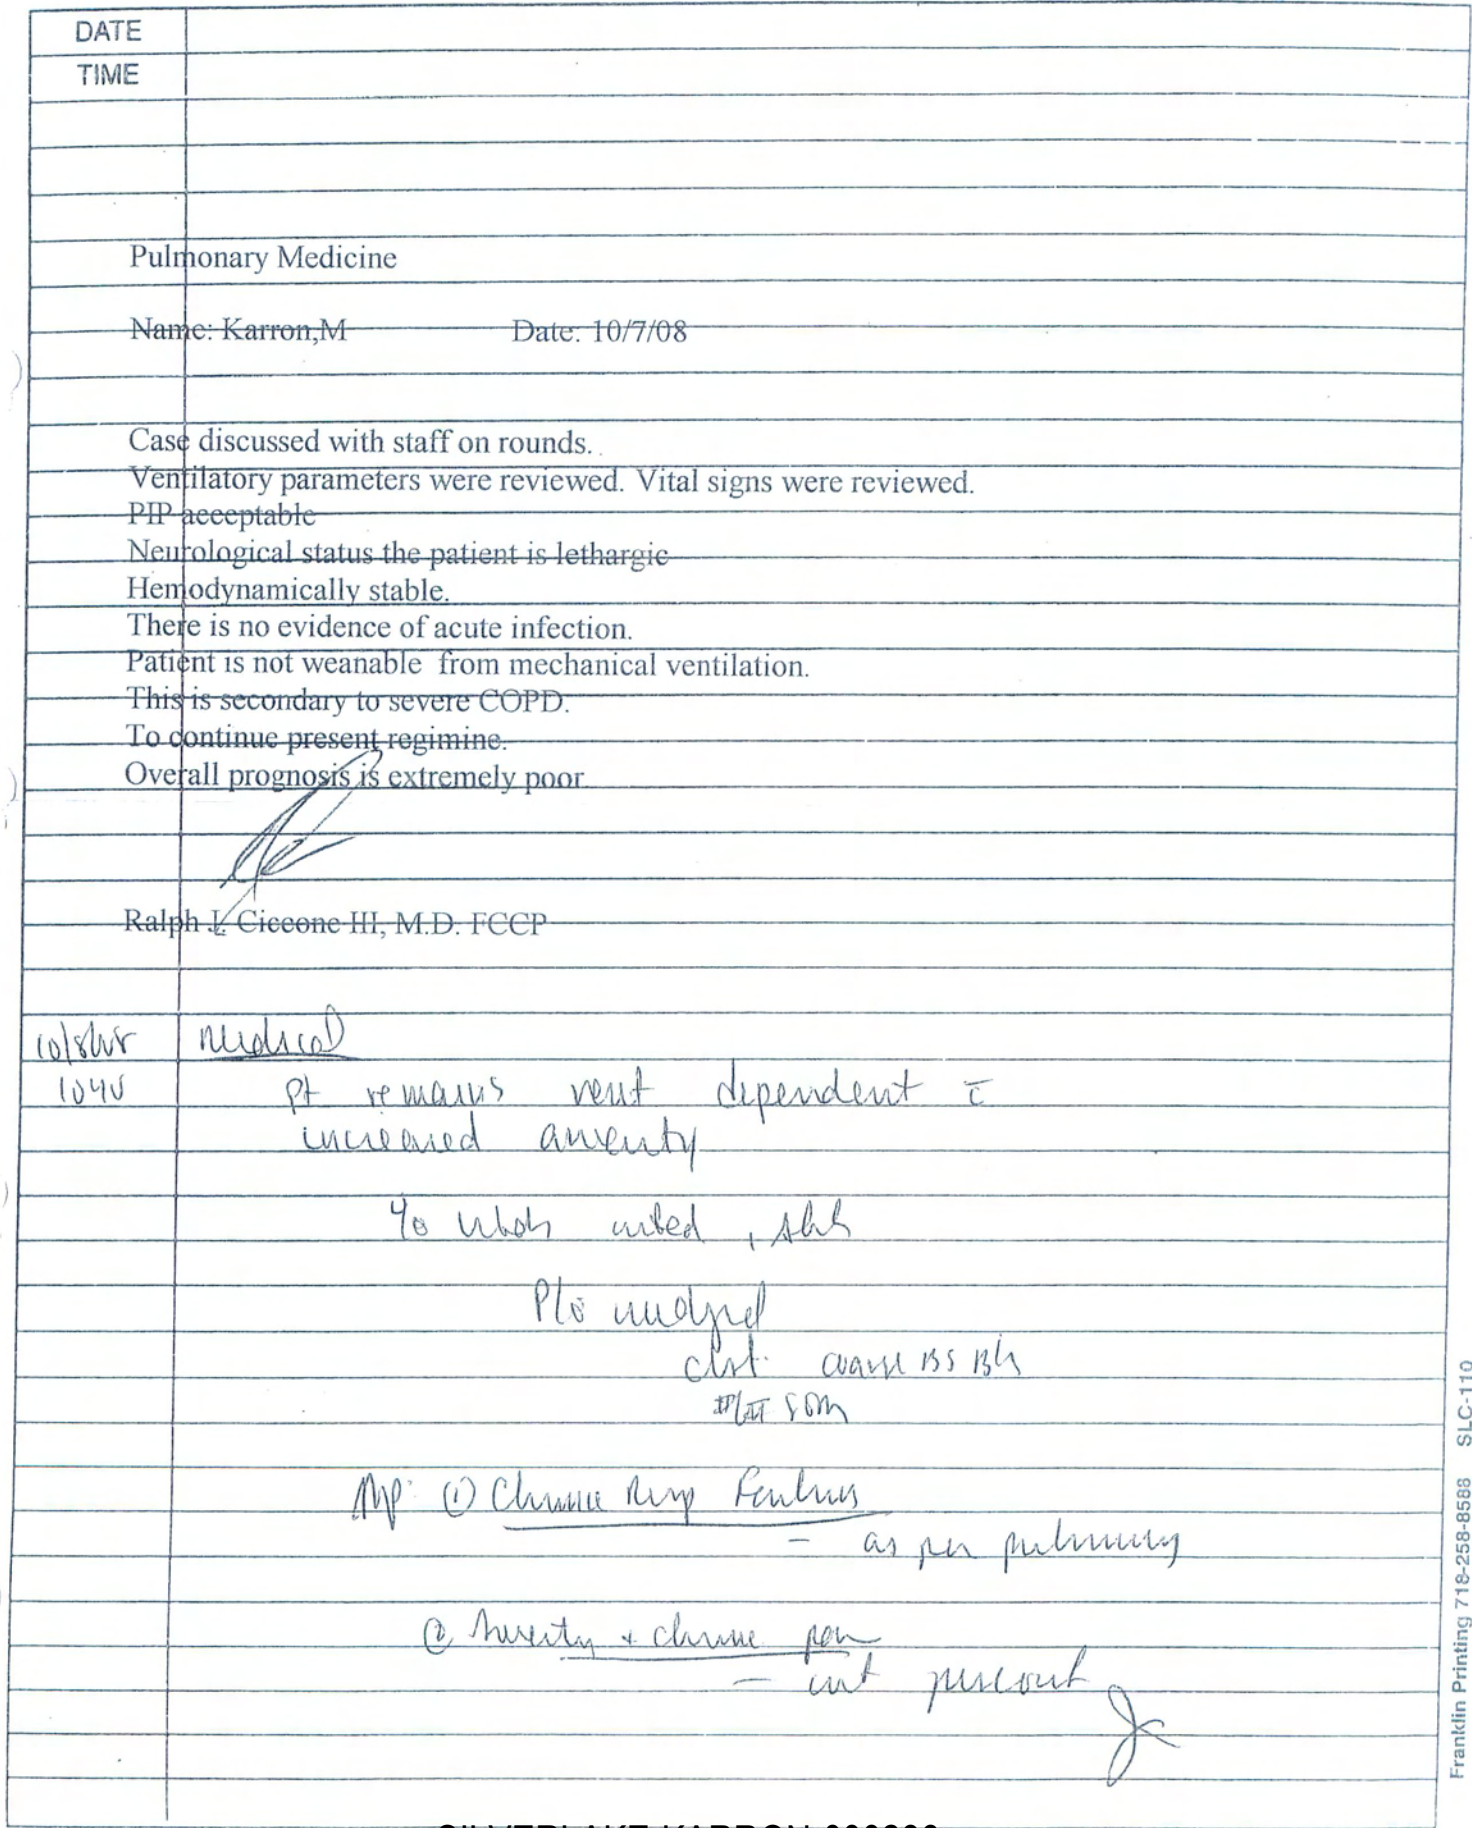 DATE
TIME
Pulmonary Medicine
Name: Karron,M Date: 10/7/08
Case discussed with staff on rounds.
Ventilatory parameters were reviewed. Vital signs were reviewed.
PIP acceptable
Neurological status the patient is lethargic
Hemodynamically stable.
There is no evidence of acute infection.
Patient is not weanable from mechanical ventilation.
This is secondary to severe COPD.
To continue present regimine.
Overall prognosis is extremely poor.
Ralph J. Ciccone III, M.D. FCCP
Medical
1040 pt remains vent dependent c̄
increased anxiety
coarse BS
① Chronic Resp Failure
- as per pulmonary
② Anxiety + chronic pain
- cont percocet
Franklin Printing 718-258-8588 SLC-110